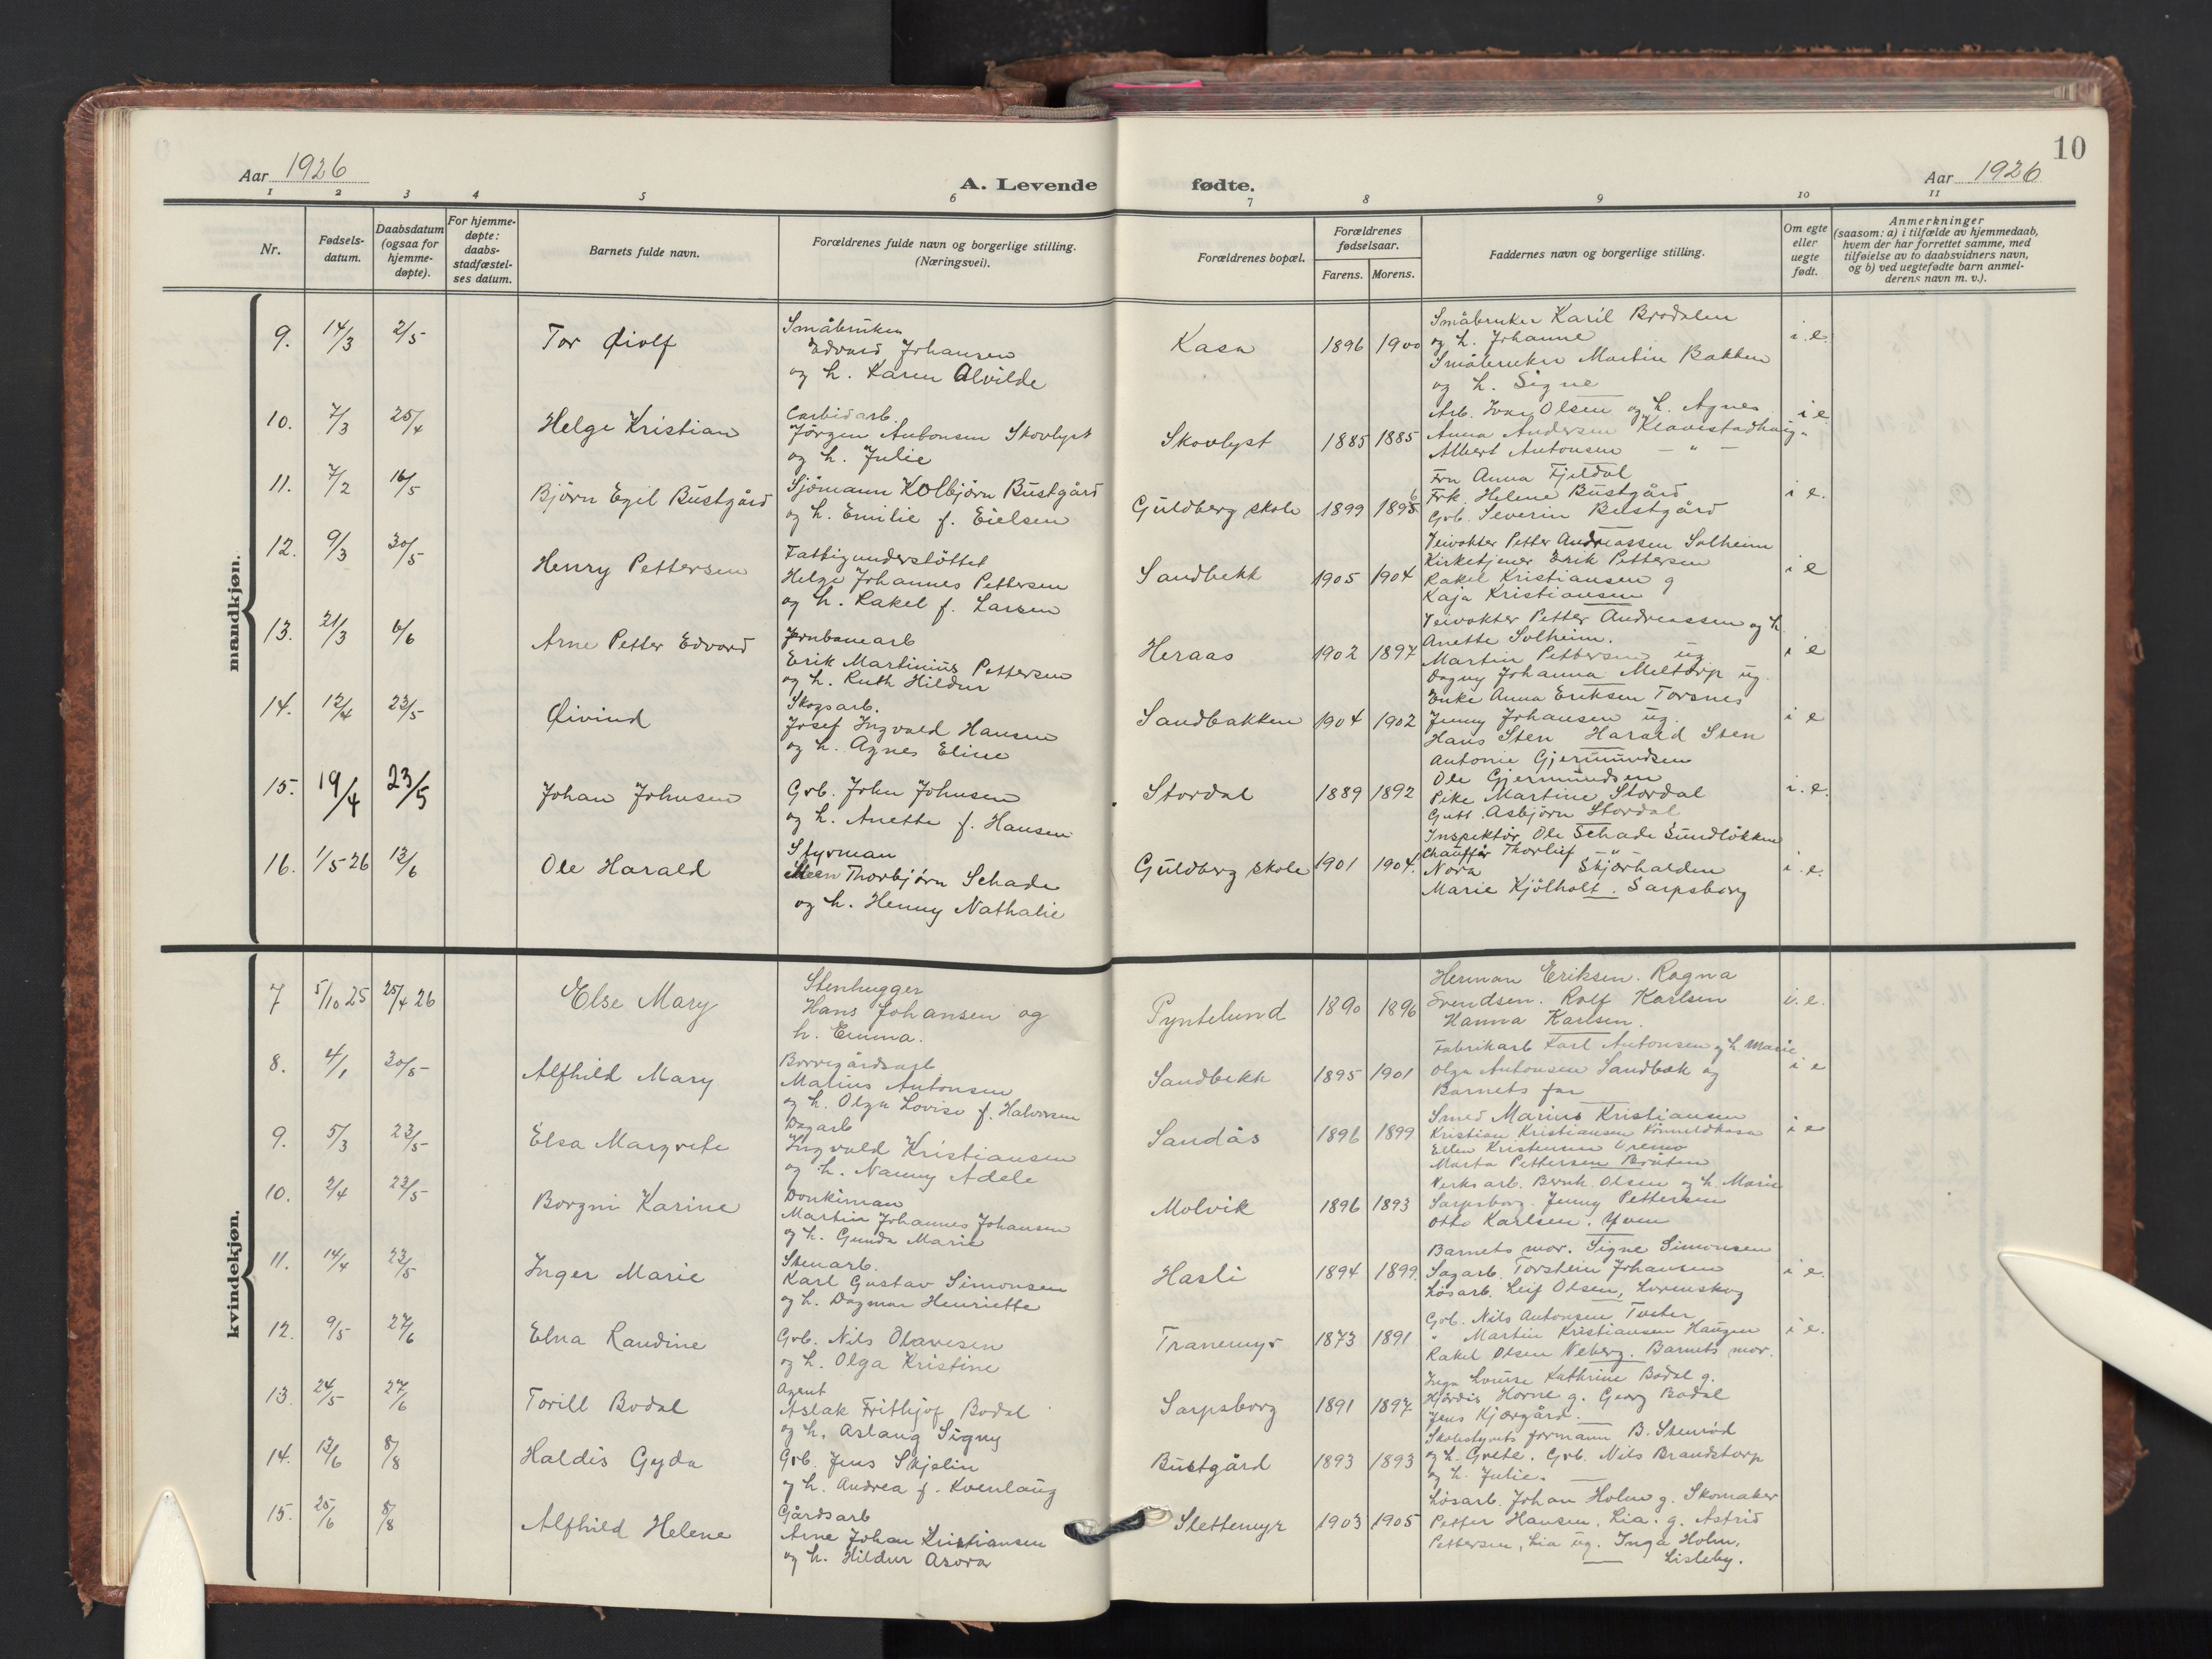 10
Aar 1926
A. Levende fødte.
Aar 1926
1 2 3 4 5 6 7 8 9 10 11
Nr.
Fødsels-
datum.
Daabsdatum
(ogsaa for
hjemme-
døpte).
For hjemme-
døpte:
daabs-
stadfæstel-
ses datum.
Barnets fulde navn.
Forældrenes fulde navn og borgerlige stilling.
(Næringsvei).
Forældrenes bopæl.
Forældrenes
fødselsaar.
Farens. Morens.
Faddernes navn og borgerlige stilling.
Om egte
eller
uegte
født.
Anmerkninger
(saasom: a) i tilfælde av hjemmedaab,
hvem der har forrettet samme, med
tilføielse av to daabsvidners navn,
og b) ved uegtefødte barn anmel-
derens navn m. v.).
mandkjøn.
9. 14/3 2/5 Tor Øiolf
Småbruker
Edvard Johansen
og h. Karen Alvilde
Kasa 1896 1900
Småbruker Karil Brodalen
og h. Johanne
Småbruker Martin Bakken
og h. Signe
i. e.
10. 7/3 25/4 Helge Kristian
Carbidarb.
Jörgen Antonsen Skovlyst
og h. Julie
Skovlyst 1885 1885
Arb. Ivar Olsen og h. Agnes
Anna Andersen Klavestadhaug
Albert Antonsen — " —
i e
11. 7/2 16/5 Björn Egil Bustgård
Sjömann Kolbjørn Bustgård
og h. Emilie f. Eielsen
Guldberg skole 1899 1896
Fru Anna Fjeldal
Frk. Helene Bustgård
Grb. Severin Bustgård
i e.
12. 9/3 30/5 Henry Pettersen
Fattigunderstöttet
Helge Johannes Pettersen
og h. Rakel f. Larsen
Sandbekk 1905 1904
Veivokter Petter Andreassen Solheim
Kirketjener Erik Pettersen
Rakel Kristiansen g
Kaja Kristiansen
i e
13. 21/3 6/6 Arne Petter Edvard
Jernbanearb
Erik Martinius Pettersen
og h. Ruth Hildur
Heraas 1902 1897
Veivokter Petter Andreassen og h.
Anette Solheim.
Martin Pettersen ug
Dagny Johanna Meltorp ug.
i e
14. 12/4 23/5 Øivind
Skogsarb.
Josef Ingvald Hansen
og h. Agnes Eline
Sandbakken 1904 1902
Enke Anna Eriksen Torsnes
Jenny Johansen ug.
Hans Sten Harald Sten
i e
15. 19/4 23/5 Johan Johnsen
Grb. John Johnsen
og h. Anette f. Hansen
Stordal 1889 1892
Antonie Gjermundsen
Ole Gjermundsen
Pike Martine Stordal
Gutt Asbjörn Stordal
i. e.
16. 1/5 26 13/6 Ole Harald
Styrman
Thorbjörn Schade
og h. Henny Nathalie
Guldberg skole 1901 1904.
Inspektör Ole Schade Sundlökken
Chauffør Thorleif — " —
Nora Skjærhalden
Marie Kjölholt. Sarpsborg
i. e.
kvindekjøn.
7 5/10 25 25/4 26 Else Mary
Stenhugger
Hans Johansen og
h. Emma.
Pyntelund 1890 1896
Herman Eriksen. Ragna
Svendsen. Rolf Karlsen
Hanna Karlsen.
i. e.
8. 4/1 30/5 Alfhild Mary
Borregårdsarb
Marius Antonsen
og h. Olga Lovise f. Halvorsen
Sandbekk 1895 1901
Fabrikarb Karl Antonsen og h. Marie.
Olga Antonsen Sandbæk og
Barnets far
i e
9. 5/3 23/5 Elsa Margrete
Dagarb
Ingvald Kristiansen
og h. Nanny Adele
Sandås 1896 1899
Smed Marius Kristiansen
Kristian Kristiansen
Ellen Kristensen
Marta Pettersen Bråten
i e
10. 2/4 23/5 Borgni Karine
Donkiman
Martin Johannes Johansen
og h. Gunda Marie
Molvik 1896 1893
Verksarb. Bernh. Olsen og h. Marie
Sarpsborg. Jenny Pettersen
Otto Karlsen. Yven
11. 14/4 23/5 Inger Marie
Stenarb.
Karl Gustav Simonsen
og h. Dagmar Henriette
Hasli 1894 1899
Barnets mor. Signe Simonsen
Sagarb. Torstein Johansen
Løsarb. Leif Olsen, Lorenskog
i e.
12. 9/5 27/6 Elna Randine
Grb. Nils Olavesen
og h. Olga Kristine
Tranemyr 1873 1891
Grb. Nils Antonsen Tveter
" Martin Kristiansen Haugen
Rakel Olsen Neberg. Barnets mor.
i e.
13. 24/5 27/6 Torill Bodal
Agent
Aslak Frithjof Bodal
og h. Aslaug Signy
Sarpsborg 1891 1897
Inga Louise Kathrine Bodal g.
Hjördis Horne g. Georg Bodal
Jens Kjærgård.
14. 13/6 8/8 Haldis Gyda
Grb. Jens Skjelin
og h. Andrea f. Kvenlaug
Bustgård 1893 1893
Skolestyrets formann B. Stenröd
og h. Grete. Grb. Nils Brandstorp
og h. Julie.
15. 25/6 8/8 Alfhild Helene
Gårdsarb
Arne Johan Kristiansen
og h. Hildur Asora
Slettemyr 1903 1905
Løsarb. Johan Holm g. Skomaker
Petter Hansen, Lia. g. Astrid
Pettersen, Lia ug. Inga Holm.
Lisleby.